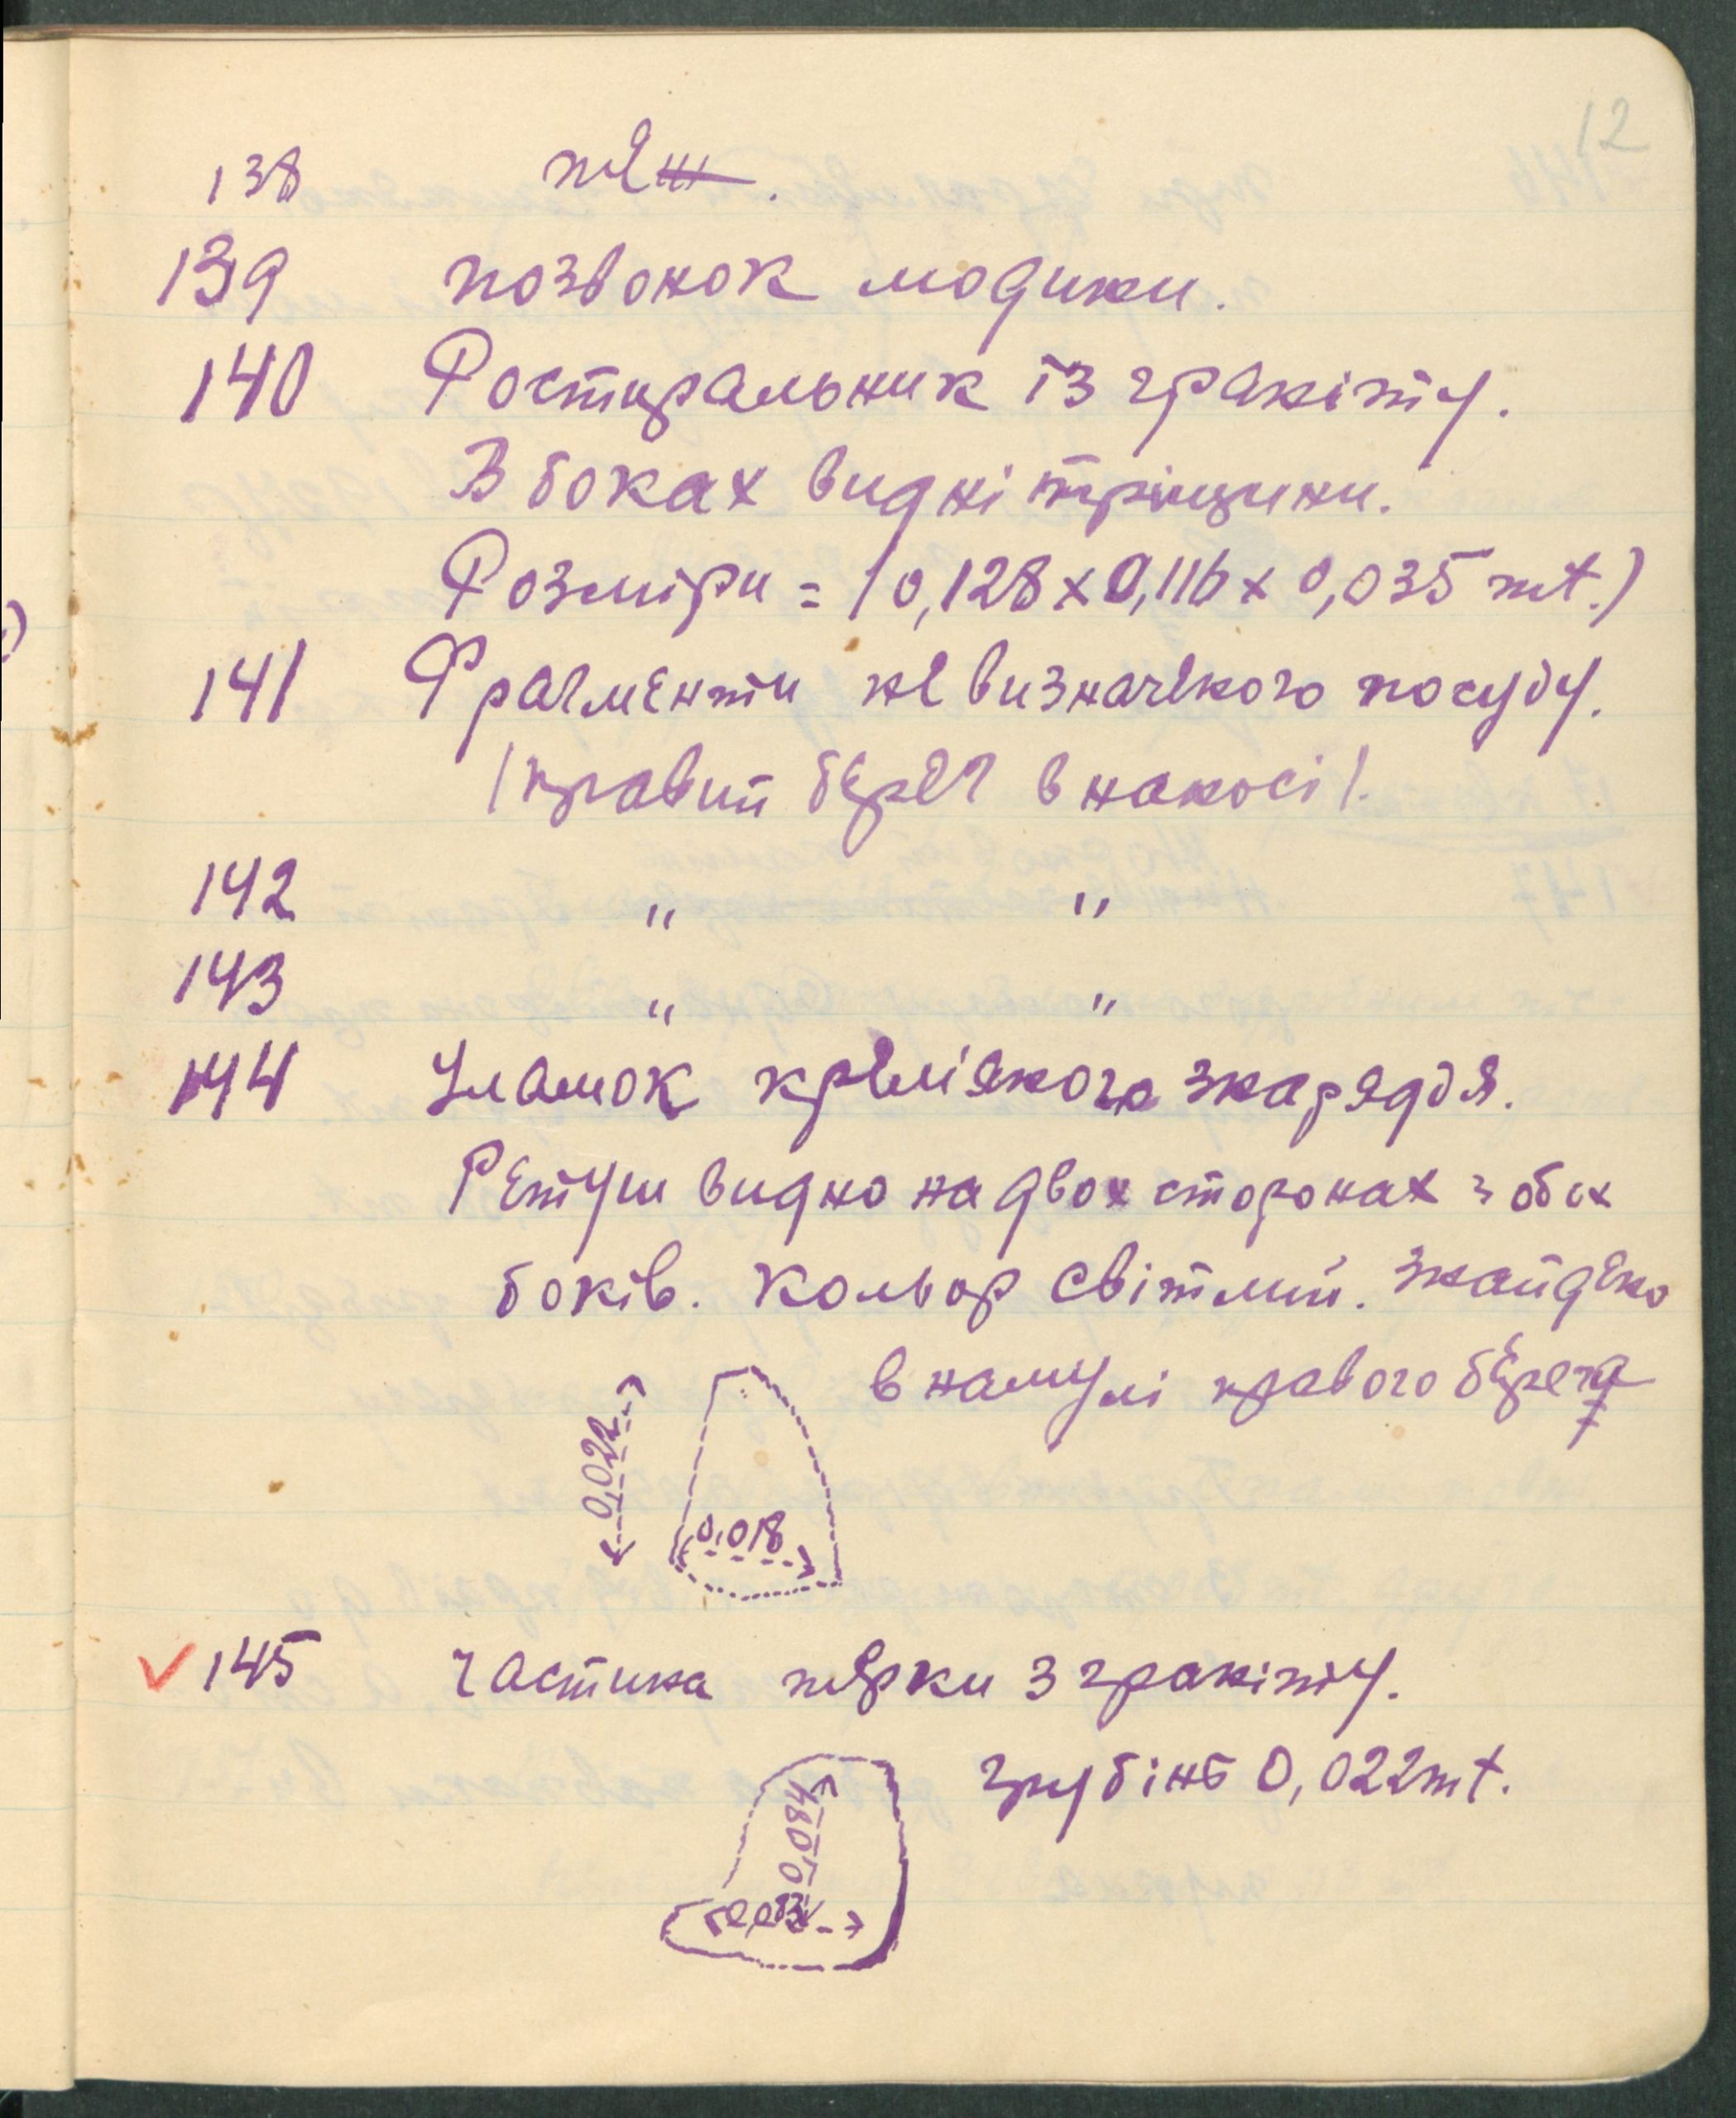 12
138 теж.
139 позвонок людини.
140 Ростиральник із граніту.
В боках видні тріщини.
Розміри = (0,128 x 0,116 x 0,035 mt.)
141 Фрагменти невизначеного посуду.
(правий берег в наносі).
142 " "
143 " "
144 Уламок крем'яного знаряддя.
Ретуш видно на двох сторонах з обох
боків. Кольор світлий. Знайдено
в намулі правого берега
0,022
0,018
145 частина терки з граніту.
грубінь 0,022 mt.
0,084